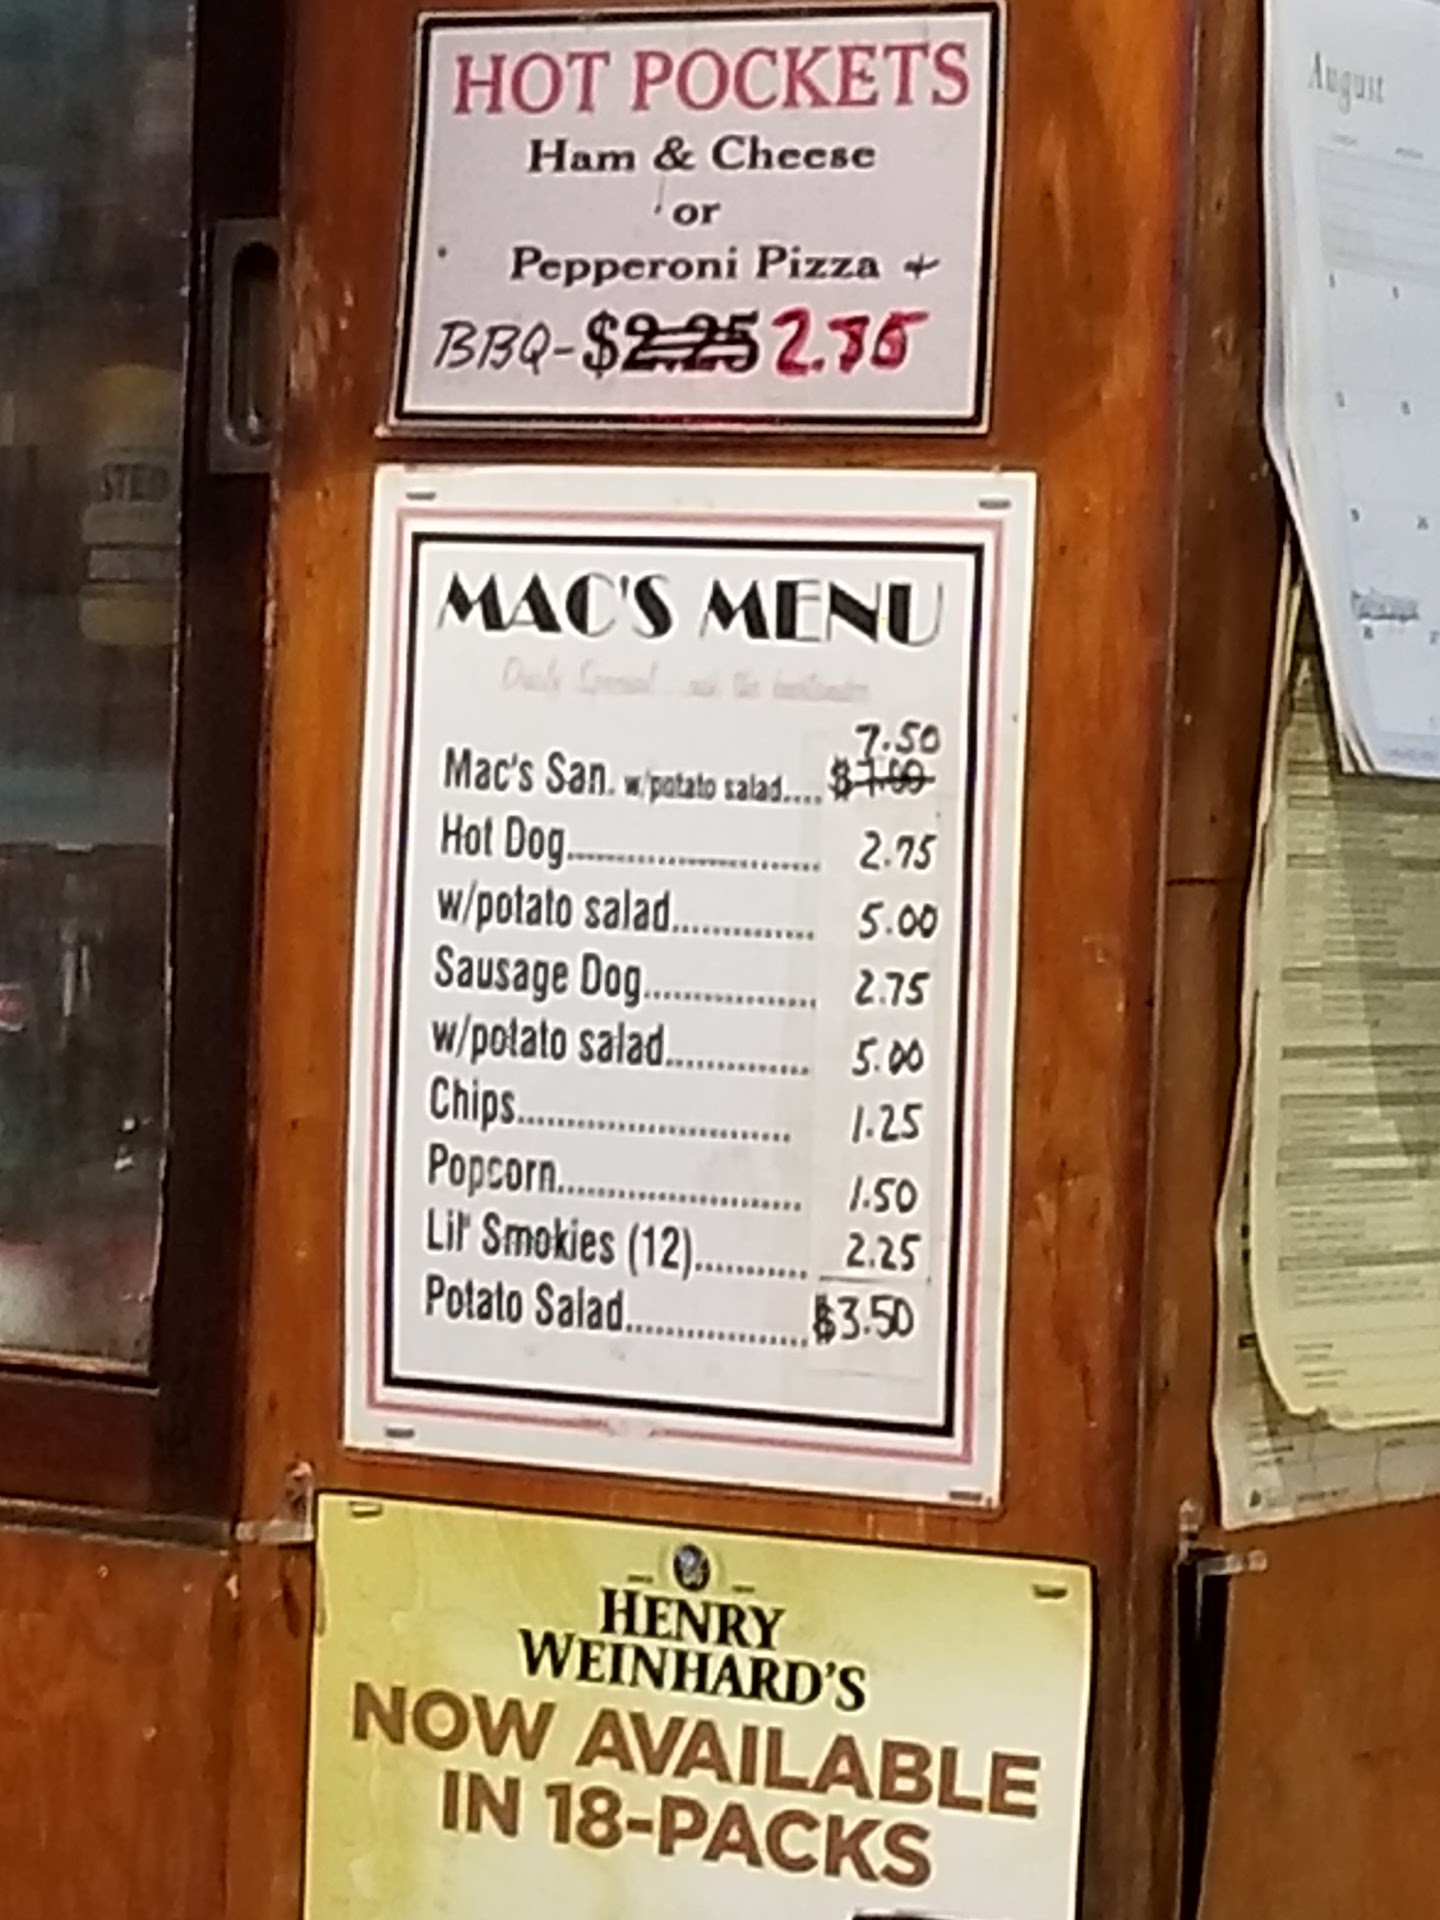 HOT POCKETS
Ham & Cheese
or
Pepperoni Pizza +
BBQ-$2.25 2.75
August
STED
MAC'S MENU
Daily Special ask the bartender
7.50
Mac's San. w/potato salad.... $7.00
Hot Dog........................ 2.75
w/potato salad.............. 5.00
Sausage Dog................. 2.75
w/potato salad.............. 5.00
Chips........................... 1.25
Popcorn........................ 1.50
Lil' Smokies (12)........... 2.25
Potato Salad.................. $3.50
HENRY
WEINHARD'S
NOW AVAILABLE
IN 18-PACKS